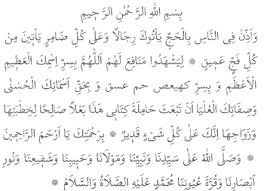 بِسْمِ اللهِ الرَّحْمٰنِ الرَّحِيمِ
وَأَذِّنْ فِى النَّاسِ بِالْحَجِّ يَأْتُوكَ رِجَالًا وَعَلَى كُلِّ ضَامِرٍ يَأْتِينَ مِن
كُلِّ فَجٍّ عَمِيقٍ ۞ لِيَشْهَدُوا مَنَافِعَ لَهُمْ اَللّٰهُمَّ بِسِرِّ اِسْمِكَ الْعَظِيمِ
الْأَعْظَمِ وَ بِسِرِّ كهيعص حم عسق وَ بِحَقِّ اَسْمَائِكَ الْحُسْنَى
وَصِفَاتِكَ الْعُلْيَا اَنْ تَبْعَثَ حَامِلَةَ كِتَابِى هٰذَا بَعْلًا صَالِحًا لِخِطْبَتِهَا
وَزَوَاجِهَا اِنَّكَ عَلَى كُلِّ شَىْءٍ قَدِيرٌ ۞ بِرَحْمَتِكَ يَا اَرْحَمَ الرَّاحِمِينَ
۞ وَصَلَّى اللهُ عَلَى سَيِّدِنَا وَنَبِيِّنَا وَمَوْلَانَا وَحَبِيبِنَا وَشَفِيعِنَا وَنُورِ
اَبْصَارِنَا وَقُرَّةِ عُيُونِنَا مُحَمَّدٍ عَلَيْهِ الصَّلَاةُ وَالسَّلَامُ ۞